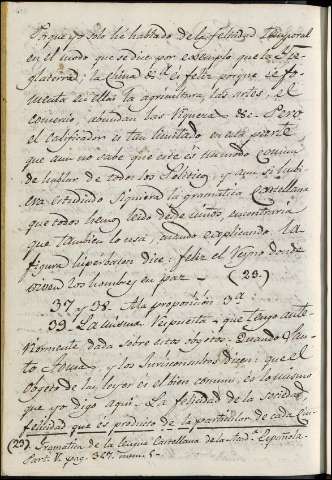 Porque yo solo he hablado de la felicidad temporal
en el modo que se dice por exemplo que la Yn-
glaterra: la China &.ª es feliz porque se fo-
menta en ellas la agricultura, las artes, el
comercio, abundan las riquezas &c. Pero
el calificador es tan limitado en esta parte
que aun no sabe que este es un modo comun
de hablar de todos los Politicos, y aun si hubi-
era estudiado siquiera la gramatica Castellana
que todos hemos leido desde niños, encontraria
que tambien lo usa, cuando explicando la
figura hiperbaton dice: feliz el Reyno donde
viven los hombres en paz — (23.)
37 y 38. A la proposicion 3ª:
39. La misma respuesta que tengo ante-
riormente dada sobre estos objetos. Quando San-
to Tomas, y los Jurisconsultos dicen: que el
objeto de las leyes es el bien comun, es lo mismo
que yo digo aqui. La felicidad de la sociedad,
felicidad que es producto de la particular de cada Ciu-
(23) Gramatica de la lengua Castellana de la Rl. Acadª Española.
Part. II. pag. 327. num. 5.